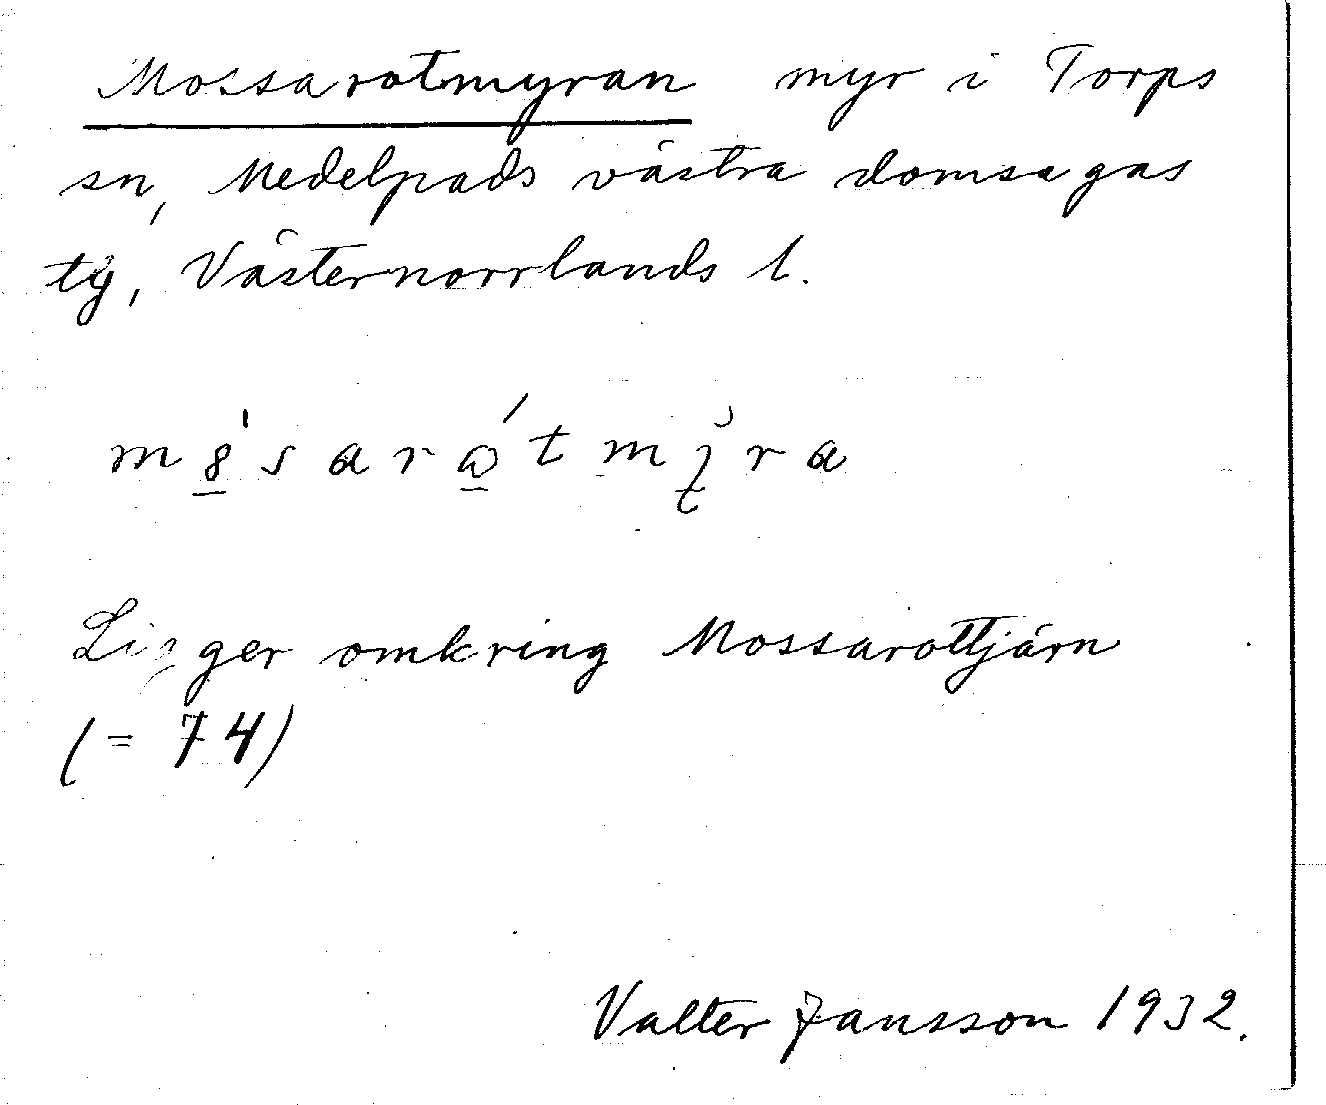 Mossarotmyran myr i Torps
sn, Medelpads västra domsagas
tg, Västernorrlands l.
Ligger omkring Mossarottjärn
(= 74)
Valter Jansson 1932.